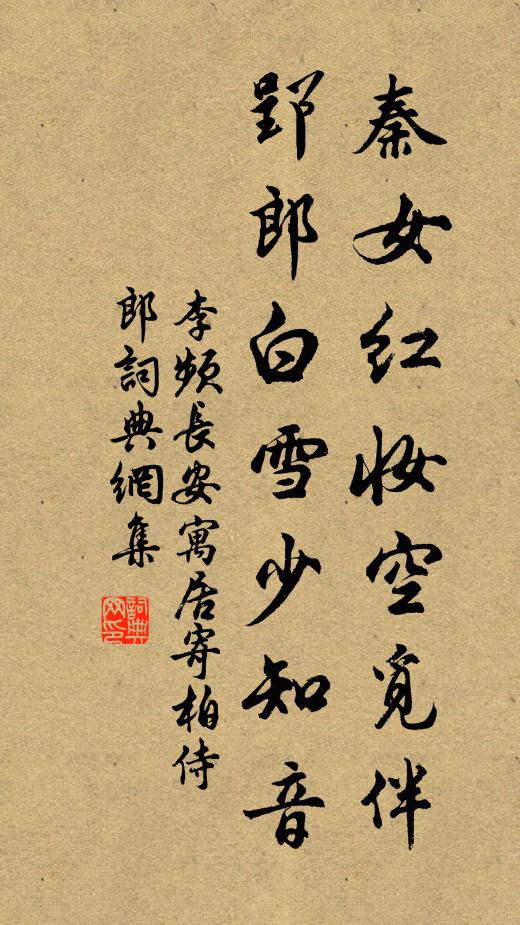 秦女红妆空觅伴
郢郎白雪少知音
李频長安寓居寄柏侍
郎詞典網集
詞典网印